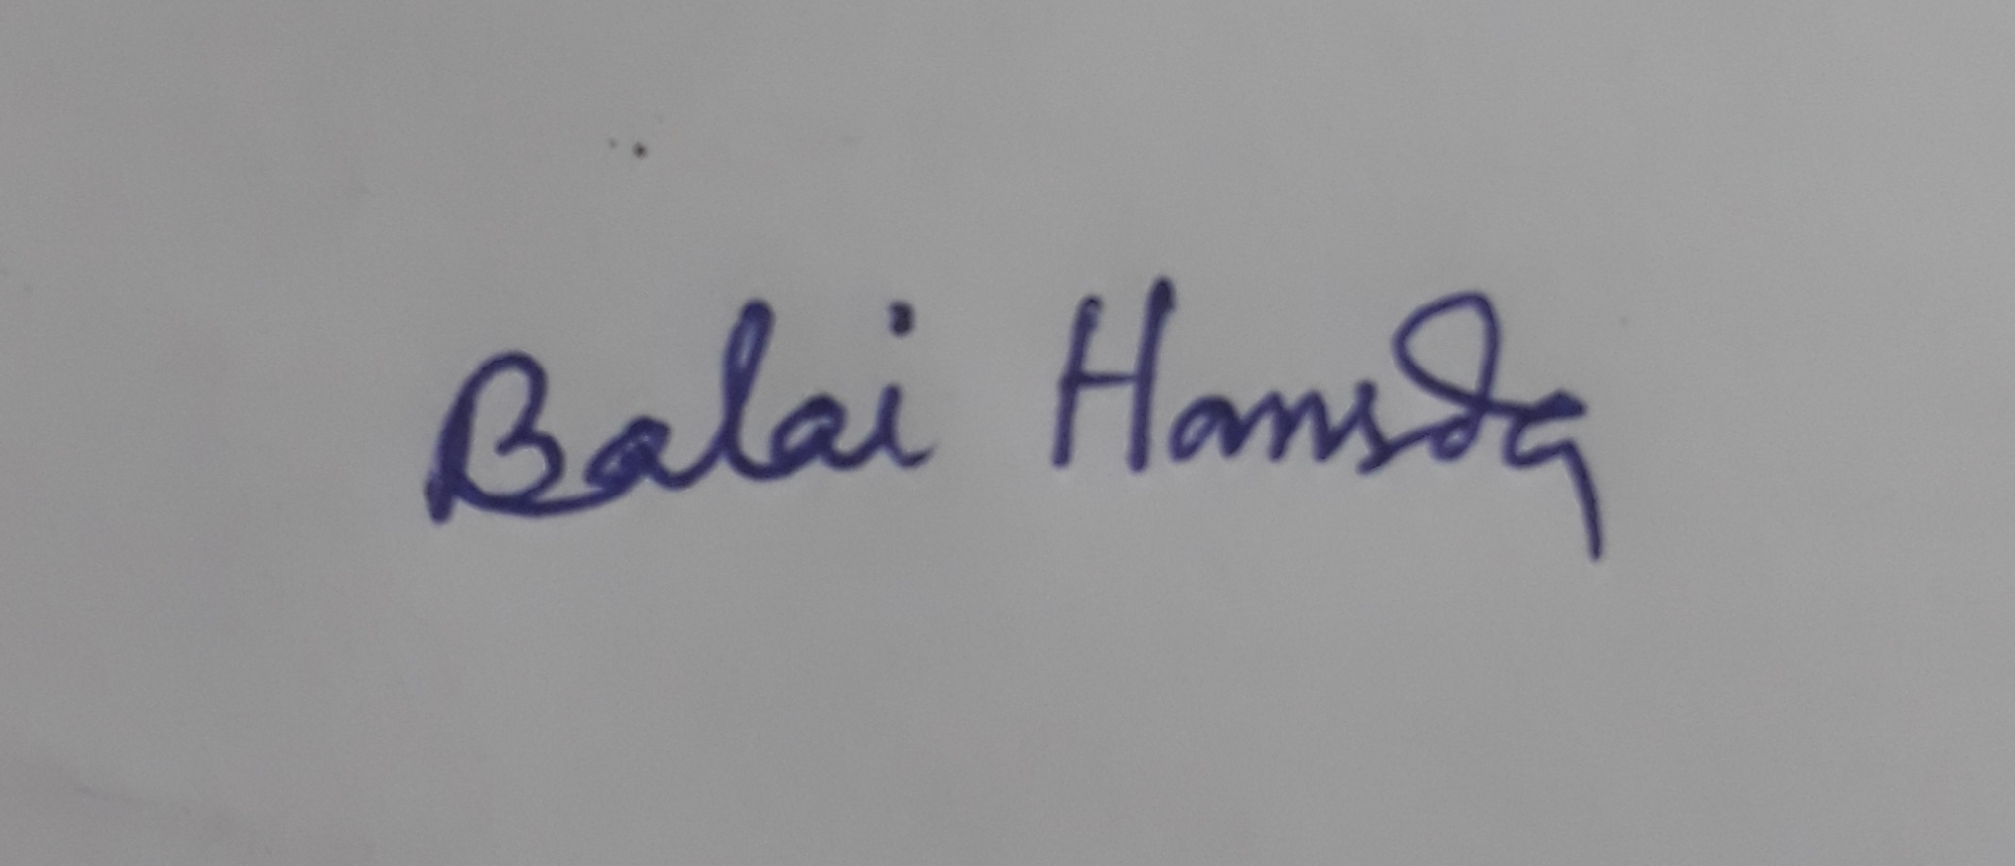 Balai Hansda